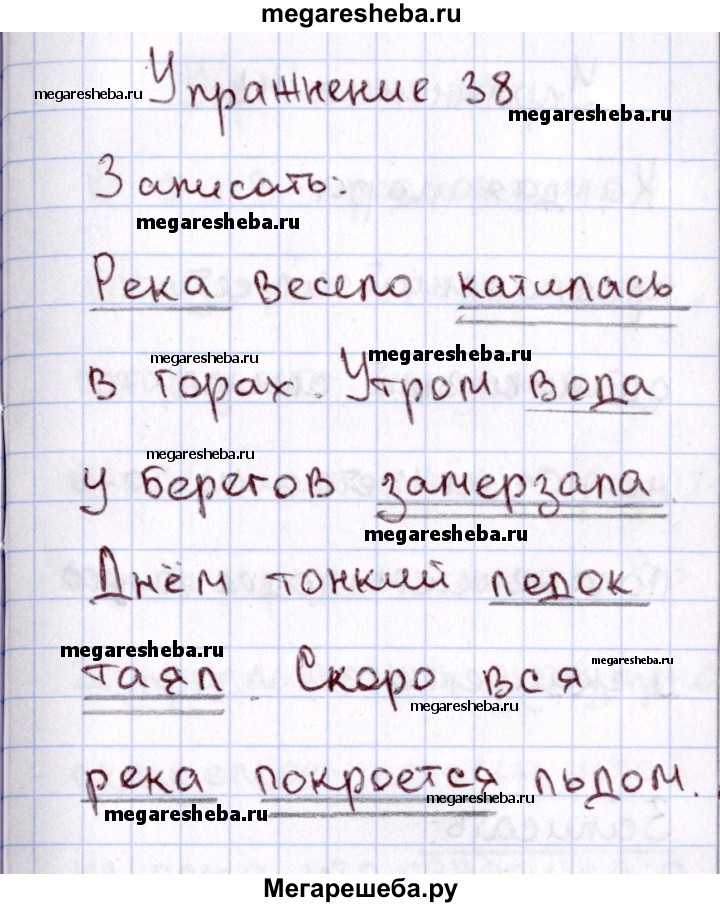 megaresheba.ru
Упражнение 38
megaresheba.ru
megaresheba.ru
Записать:
megaresheba.ru
Река весело катилась
megaresheba.ru
megaresheba.ru
в горах. Утром вода
megaresheba.ru
у берегов замерзала.
megaresheba.ru
Днём тонкий ледок
megaresheba.ru
megaresheba.ru
таял. Скоро вся
megaresheba.ru
река покроется льдом.
megaresheba.ru
megaresheba.ru
Мегарешеба.ру